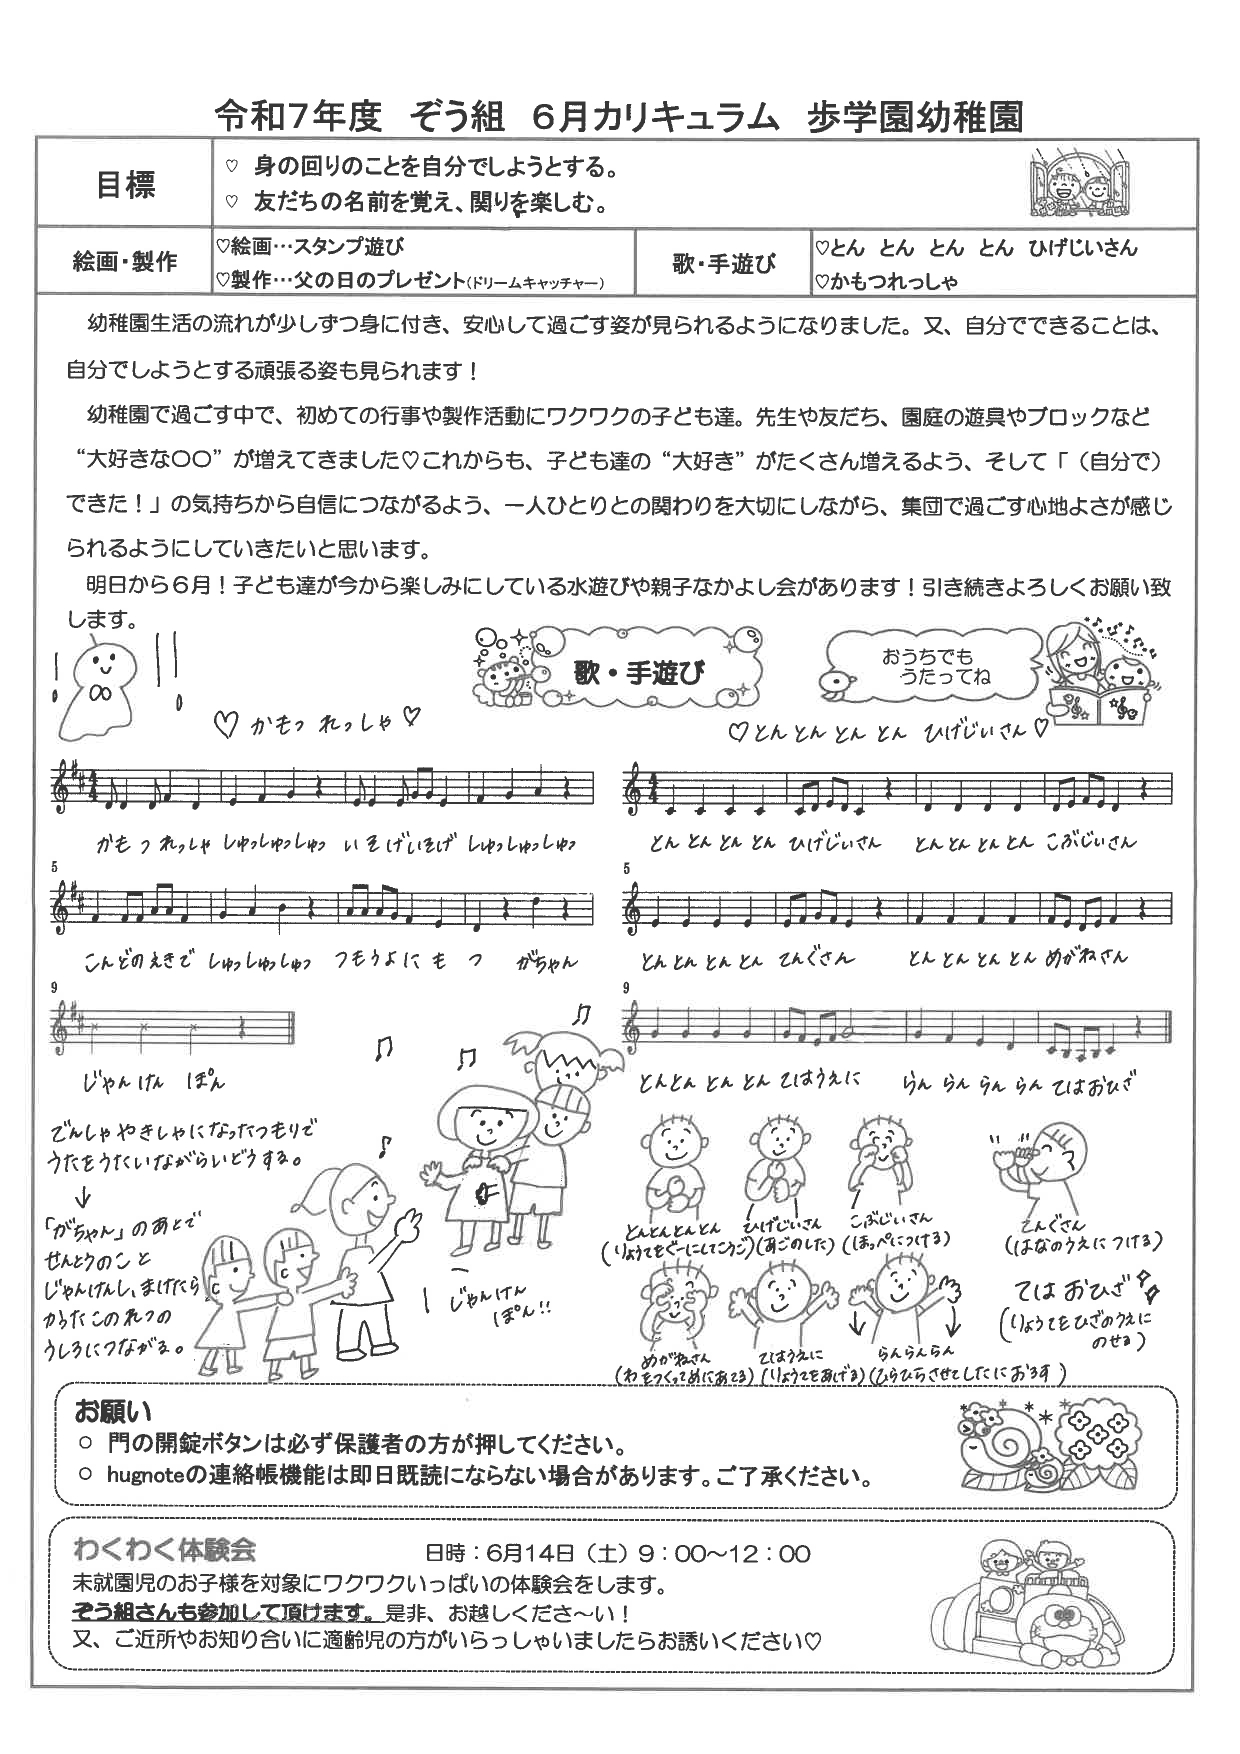 令和7年度　ぞう組　6月カリキュラム　歩学園幼稚園
目標
♡ 身の回りのことを自分でしようとする。
♡ 友だちの名前を覚え、関りを楽しむ。
絵画・製作
♡絵画…スタンプ遊び
♡製作…父の日のプレゼント(ドリームキャッチャー)
歌・手遊び
♡とん とん とん とん ひげじいさん
♡かもつれっしゃ
幼稚園生活の流れが少しずつ身に付き、安心して過ごす姿が見られるようになりました。又、自分でできることは、
自分でしようとする頑張る姿も見られます！
幼稚園で過ごす中で、初めての行事や製作活動にワクワクの子ども達。先生や友だち、園庭の遊具やブロックなど
“大好きな〇〇”が増えてきました♡これからも、子ども達の“大好き”がたくさん増えるよう、そして「（自分で）
できた！」の気持ちから自信につながるよう、一人ひとりとの関わりを大切にしながら、集団で過ごす心地よさが感じ
られるようにしていきたいと思います。
明日から６月！子ども達が今から楽しみにしている水遊びや親子なかよし会があります！引き続きよろしくお願い致
します。
歌・手遊び
おうちでも
うたってね
♡ かもつ れっしゃ ♡
かもつ れっしゃ しゅっしゅっしゅっ いそげいそげ しゅっしゅっしゅっ
5
こんどのえきで しゅっしゅっしゅっ つもうよにもつ がちゃん
9
じゃん けん ぽん
でんしゃやきしゃになったつもりで
うたをうたいながらいどうする。
↓
「がちゃん」のあとで
せんとうのこと
じゃんけんし、まけたら
かちたこのれつの
うしろにつながる。
じゃんけん
ぽん!!
♡とん とん とん とん ひげじいさん♡
とん とん とん とん ひげじいさん とん とん とん とん こぶじいさん
5
とん とん とん とん てんぐさん とん とん とん とん めがねさん
9
とん とん とん とん てはうえに らん らん らん らん てはおひざ
とんとんとんとん
(りょうてをぐーにしてこうご)
ひげじいさん
(あごのした)
こぶじいさん
(ほっぺにつける)
てんぐさん
(はなのうえにつける)
めがねさん
(わをつくってめにあてる)
てはうえに
(りょうてをあげる)
らんらんらん
(ひらひらさせてしたにおろす)
てはおひざ
(りょうてをひざのうえに
のせる)
お願い
○ 門の開錠ボタンは必ず保護者の方が押してください。
○ hugnoteの連絡帳機能は即日既読にならない場合があります。ご了承ください。
わくわく体験会
日時：6月14日（土）9：00～12：00
未就園児のお子様を対象にワクワクいっぱいの体験会をします。
ぞう組さんも参加して頂けます。是非、お越しくださ～い！
又、ご近所やお知り合いに適齢児の方がいらっしゃいましたらお誘いください♡